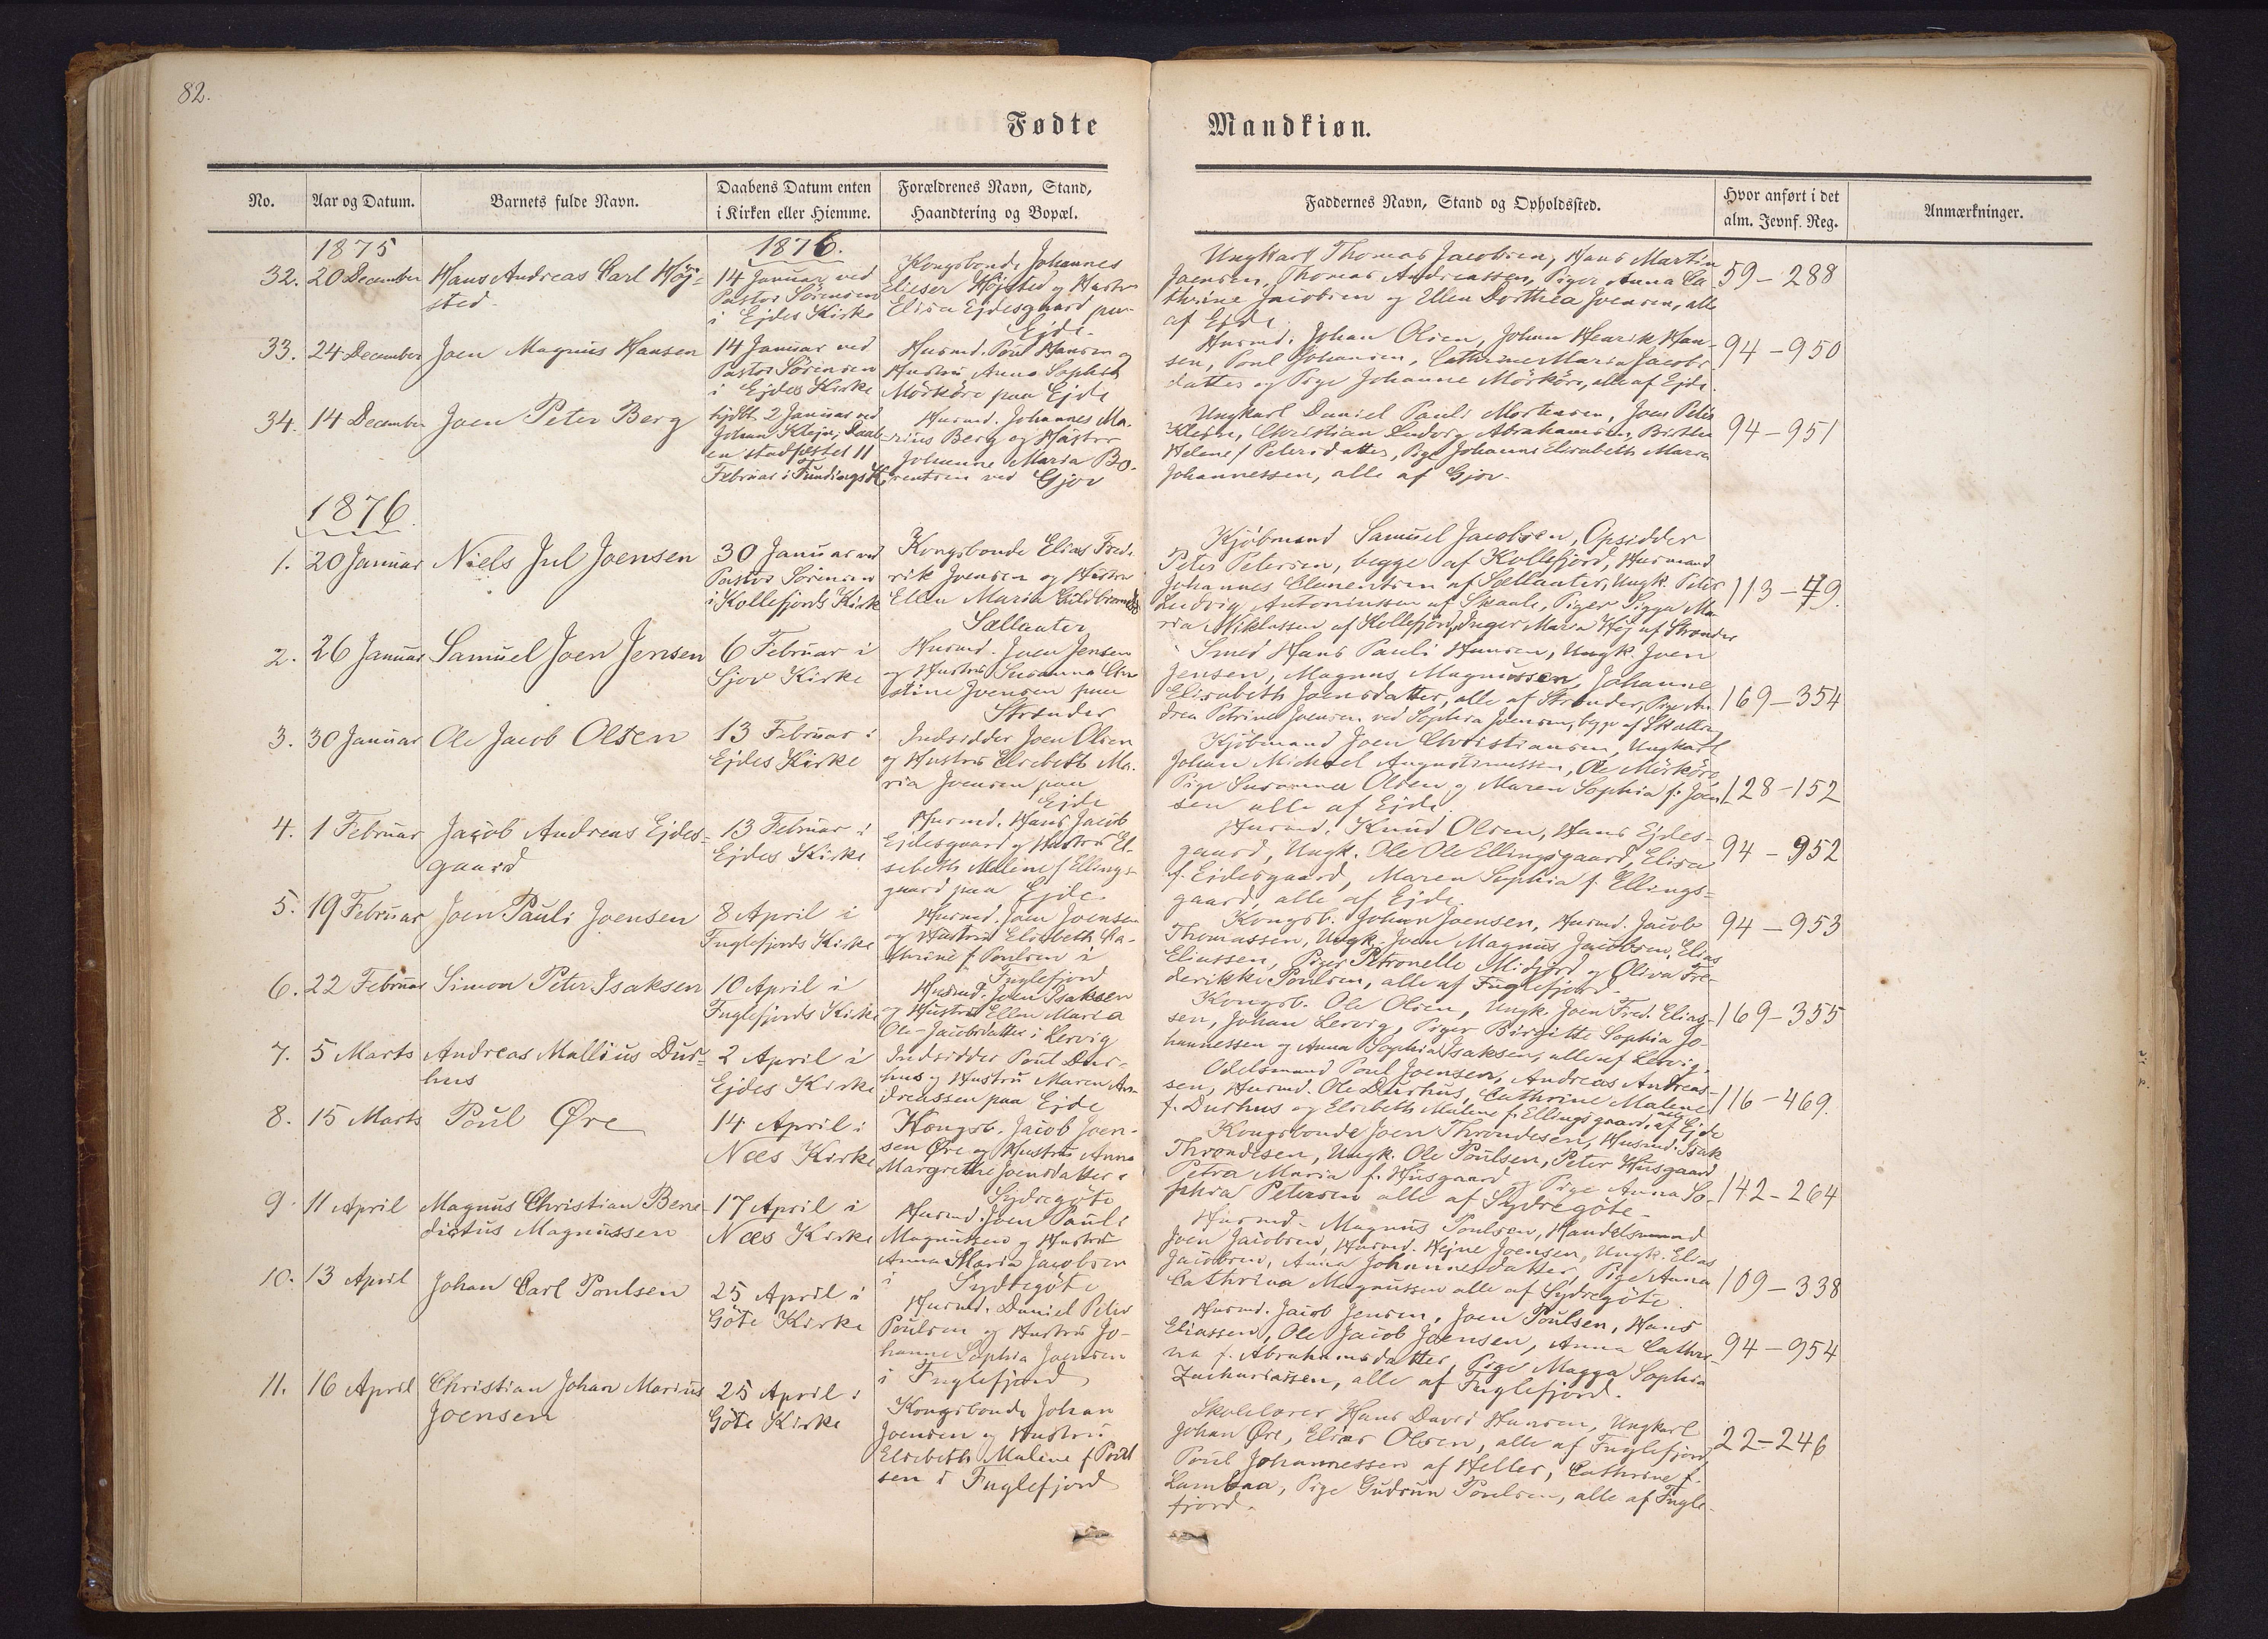 82.
Fødte
Mandkiøn.
No.
Aar og Datum.
Barnets fulde Navn.
Daabens Datum enten
i Kirken eller Hiemme.
Forældrenes Navn, Stand,
Haandtering og Bopæl.
Faddernes Navn, Stand og Opholdssted.
Hvor anført i det
alm. Jevnf. Reg.
Anmærkninger.
1875
1876.
32.
20 December
Hans Andreas Carl Høj-
sted
14 Januar ved
Pastor Sørensen
i Ejdes Kirke
Kongsbonde Johannes
Elieser Højsted og Hustru
Elisa Ejdesgaard paa
Ejde.
Ungkarl Thomas Jacobsen, Hans Martin
Joensen, Thomas Andreassen, Piger Anna Ca-
thrine Jacobsen og Ellen Dorthea Joensen, alle
af Ejde.
59-288
33.
24 December
Joen Magnus Hansen
14 Januar ved
Pastor Sørensen
i Ejdes Kirke
Husmd. Poul Hansen og
Hustru Anna Sophia
Mörköre paa Ejde
Husmd. Johan Olsen, Johan Henrik Han-
sen, Poul Johansen, Cathrine Maria Jacobs-
datter og Pige Johanne Mörköre, alle af Ejde.
94-950
34.
14 December
Joen Peter Berg
hjdbt. 2 Januar ved
Johan Klejn, Daab-
en stadfæstet 11
Februar i Fundings K.
Husmd. Johannes Ma-
rius Berg og Hustru
Johanne Maria Bo-
rentsen ved Gjov
Ungkarl Daniel Pauli Mortensen, Joen Peter
Klejn, Christian Ludvig Abrahamsen, Birthe
Helene f Petersdatter, Pige Johanne Elisabeth Maria
Johannessen, alle af Gjov.
94-951
1876
1.
20 Januar
Niels Jul Joensen
30 Januar ved
Pastor Sørensen
i Kollefjords Kirke
Kongsbonde Elias Fred-
rik Joensen og Hustru
Ellen Maria
Sællauter
Kjöbmand Samuel Jacobsen, Opsidder
Peter Petersen, begge af Kollefjord, Husmand
Johannes Clementsen af Sællauter, Ungk. Peter
Ludvig Antoniussen af Skaale, Piger Sigga Ma-
ria Niklassen af Kollefjord, Inger Maria Höj af Strænder
113-49.
2.
26 Januar
Samuel Joen Jensen
6 Februar i
Sjov Kirke
Husmd. Joen Jensen
og Hustru Susanna Chri
stine Joensen paa
Strænder
Smed Hans Pauli Hansen, Ungk. Joen
Jensen, Magnus Magnussen, Johanne
Elisabeth Joensdatter, alle af Strænder, Pige An-
drea Petrine Joensen ved Sophia Joensen, begge af Skaller
169-354
3.
30 Januar
Ole Jacob Olsen
13 Februar i
Ejdes Kirke
Indsidder Joen Olsen
og Hustru Elsebeth Ma-
ria Joensen paa
Ejde
Kjöbmand Joen Christiansen, Ungkarl
Johan Michael Augustinussen, Ole Mörköre,
Pige Susanna Olsen og Maren Sophia f. Joen-
sen alle af Ejde.
128-152
4.
1 Februar
Jacob Andreas Ejdes-
gaard
13 Februar i
Ejdes Kirke
Husmd. Hans Jacob
Ejdesgaard og Hustru El-
sebeth Malene f Ellings-
gaard paa Ejde
Husmd. Knud Olsen, Hans Ejdes-
gaard, Ungk. Ole Ole Ellingsgaard, Elisa
f. Ejdesgaard, Maren Sophia f. Ellings-
gaard, alle af Ejde.
94-952
5.
19 Februar
Joen Pauli Joensen
8 April i
Fuglefjords Kirke
Husmd. Joen Joensen
og Hustru Elisabeth Ca-
thrine f Poulsen i
Fuglefjord
Kongsb. Johan Joensen, Husmd. Jacob
Thomassen, Ungk. Joen Magnus Jacobsen, Elias
Eliassen, Piger Petronelle Midjord og Oliva Fre-
derikke Poulsen, alle af Fuglefjord.
94-953
6.
22 Februar
Simon Peter Isaksen
10 April i
Fuglefjords Kirke
Husmd. Joen Isaksen
og Hustru Ellen Maria
Ole-Jacobsdatter i Lervig
Kongsb. Ole Olsen, Ungk. Joen Fred. Elias-
sen, Johan Lervig, Piger Birgitte Sophia Jo-
hannessen og Anna Sophia Isaksen, alle af Lervig.
169-355
7.
5 Marts
Andreas Mallius Dur-
hus
2 April i
Ejdes Kirke
Indsidder Poul Dur-
hus og Hustru Maren An-
dreassen paa Ejde
Odelsmand Poul Joensen, Andreas Andreas-
sen, Husmd. Ole Durhus, Cathrine Malene
f. Durhus og Elsebeth Malene f. Ellingsgaard, alle af Ejde
116-469.
8.
15 Marts
Poul Øre
14 April i
Næs Kirke
Kongsb. Jacob Joen-
sen Øre og Hustru Anna
Margrethe Joensdatter i
Sydregöte
Kongsbonde Joen Throndesen, Husmd. Isak
Throndesen, Ungk. Ole Poulsen, Peter Husgaard
Petra Maria f. Husgaard og Pige Anna So-
phia Petersen alle af Sydregöte.
142-264
9.
11 April
Magnus Christian Bene-
dictus Magnussen
17 April i
Næs Kirke
Husmd. Joen Pauli
Magnussen og Hustru
Anna Maria Jacobsen
i Sydregöte
Husmd. Magnus Poulsen, Handelsmand
Joen Jacobsen, Husmd. Hejne Joensen, Ungk. Elias
Jacobsen, Anna Johannesdatter, Pige Anna
Cathrina Magnussen alle af Sydregöte.
109-338
10.
13 April
Johan Carl Poulsen
25 April i
Göte Kirke
Husmd. Daniel Peter
Poulsen og Hustru Jo-
hanne Sophia Joensen
i Fuglefjord
Husmd. Jacob Jensen, Joen Poulsen, Hans
Eliassen, Ole Jacob Joensen, Anna Cathri-
na f. Abrahamsdatter, Pige Magga Sophia
Zachariassen, alle af Fuglefjord.
94-954
11.
16 April
Christian Johan Marius
Joensen
25 April i
Göte Kirke
Kongsbonde Johan
Joensen og Hustru
Elsebeth Malene f Poul
sen i Fuglefjord
Skolelærer Hans David Hansen, Ungkarl
Johan Øre, Elias Olsen, alle af Fuglefjord,
Poul Johannessen af Heller, Cathrine f.
Lambaa, Pige Gudrun Poulsen, alle af Fugle-
fjord.
22-246